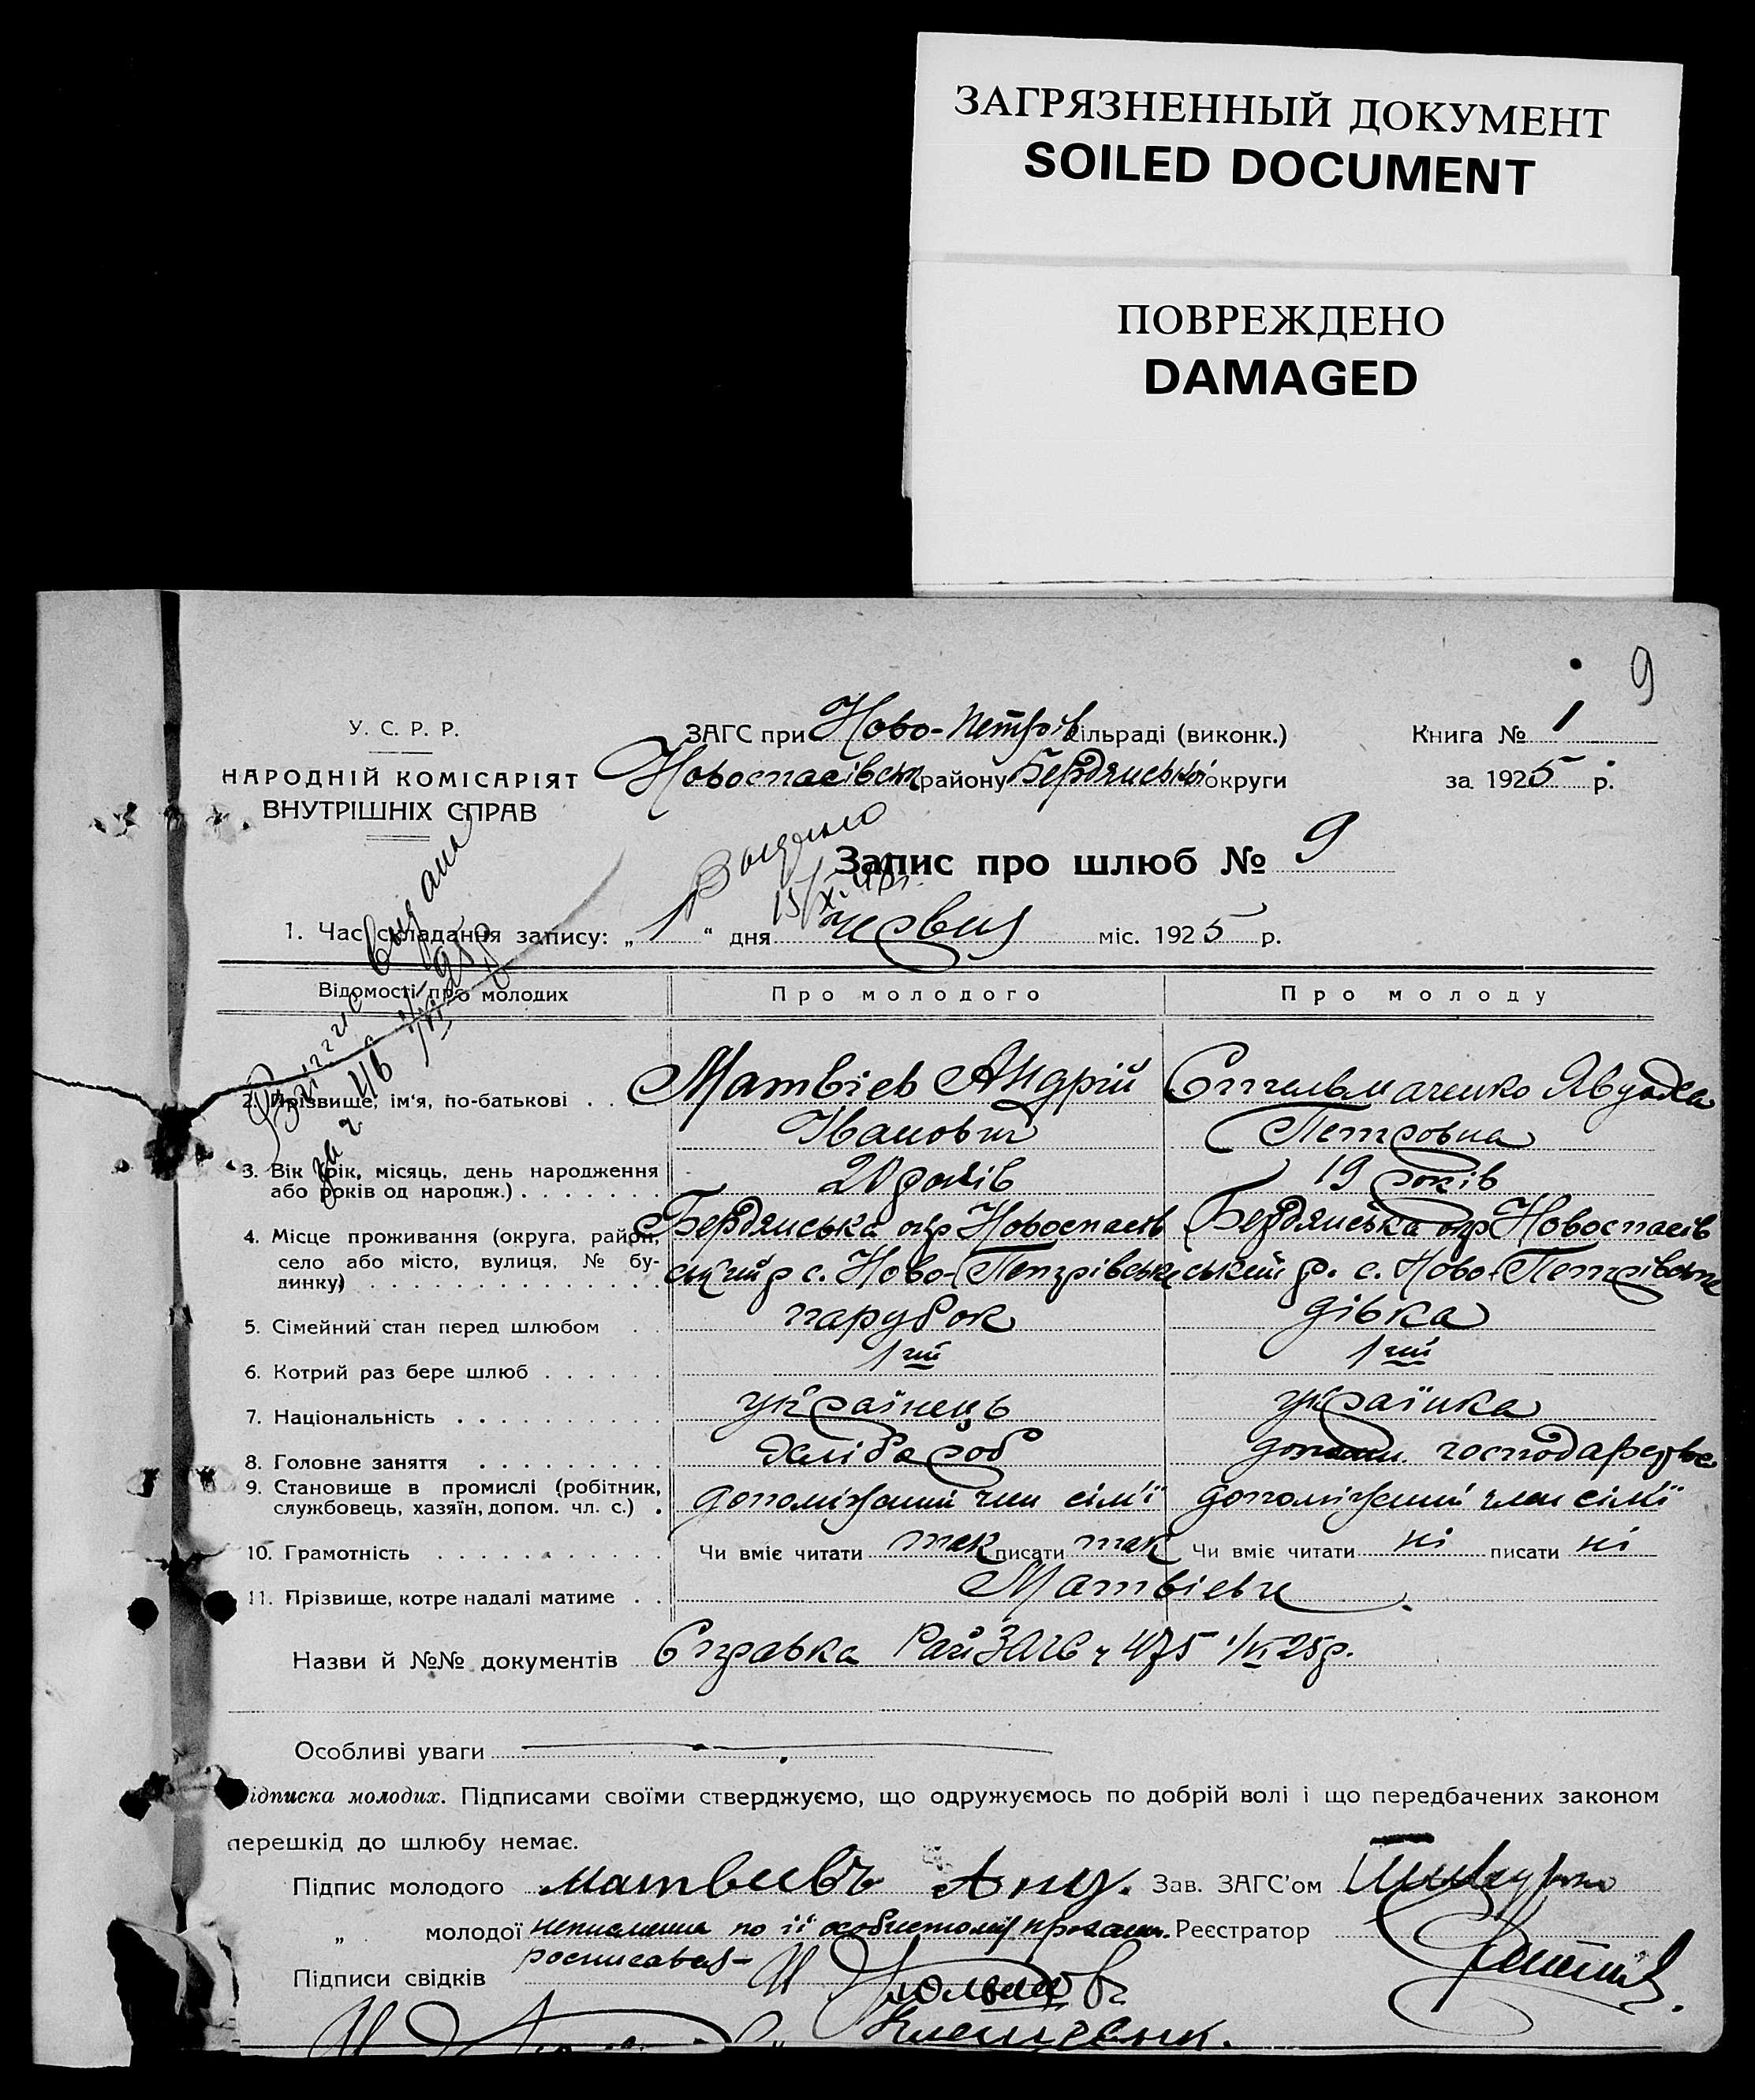 ЗАГРЯЗНЕННЫЙ ДОКУМЕНТ
SOILED DOCUMENT
ПОВРЕЖДЕНО
DAMAGED
9
У. С. Р. Р.
НАРОДНІЙ КОМІСАРІЯТ
ВНУТРІШНІХ СПРАВ
ЗАГС при Ново-Петрів сільраді (виконк.)
Новоспасівськ району Бердянської округи
Книга № 1
за 1925 р.
Видано
15/XI
Запис про шлюб № 9
1. Час складання запису: „ 1 “ дня червня міс. 1925 р.
Відомості про молодих
Про молодого
Про молоду
2. Прізвище, ім'я, по-батькові . . .
Матвіев Андрій
Іванович
Стельмаченко Явдоха
Петровна
3. Вік (рік, місяць, день народження
або років од народж.) . . . . . . .
20 років
19 років
4. Місце проживання (округа, район,
село або місто, вулиця, № бу-
динку) . . . . . . . . . . . . . .
Бердянська окр Новоспасів
ський р с. Ново-Петрівське
Бердянська окр Новоспасів
ський р. с. Ново-Петрівське
5. Сімейний стан перед шлюбом . .
парубок
дівка
6. Котрий раз бере шлюб . . . . . .
1ий
1ий
7. Національність . . . . . . . . . .
українець
українка
8. Головне заняття . . . . . . . . .
хлібороб
господарство
9. Становище в промислі (робітник,
службовець, хазяїн, допом. чл. с.) .
допоміжний член сім'ї
допоміжний член сім'ї
10. Грамотність . . . . . . . . . . .
Чи вміє читати так писати так
Чи вміє читати ні писати ні
11. Прізвище, котре надалі матиме . .
Матвіеви
Назви й №№ документів Справка РайЗАГС ч 475 1/VI 25р.
Особливі уваги
Підписка молодих. Підписами своїми стверджуємо, що одружуємось по добрій волі і що передбачених законом
перешкід до шлюбу немає.
Підпис молодого Матвеевъ Анд. Зав. ЗАГС'ом
„ молодої неписьменна по її особистому прохан. Реєстратор
росписався
Підписи свідків